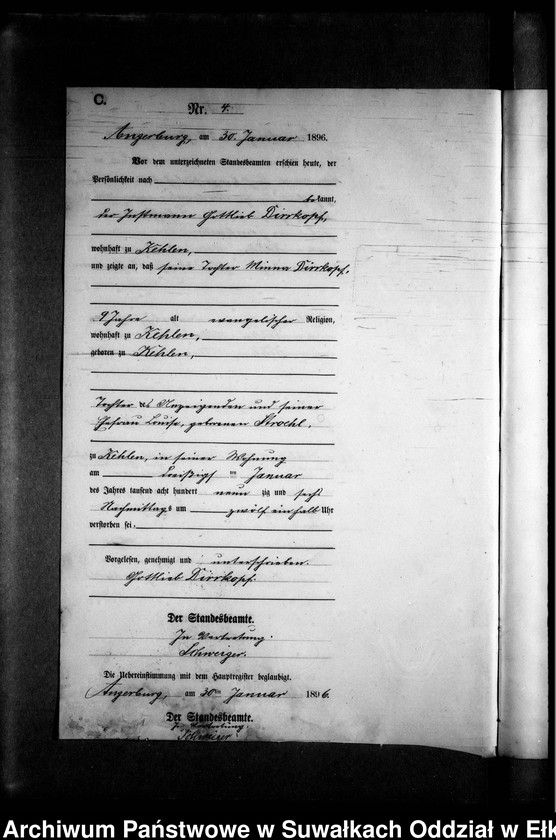 C.
Nr. 4.
Angerburg, am 30. Januar 1896.
Vor dem unterzeichneten Standesbeamten erschien heute, der
Persönlichkeit nach
bekannt,
der Instmann Gottlieb Dirrkopf,
wohnhaft zu Kehlen,
und zeigte an, daß seine Tochter Minna Dirrkopf,
9 Jahre alt evangelischer Religion,
wohnhaft zu Kehlen,
geboren zu Kehlen,
Tochter des Anzeigenden und seiner
Ehefrau Louise, geborenen Stroehl.
zu Kehlen, in seiner Wohnung
am dreißigsten Januar
des Jahres tausend acht hundert neun zig und sechs
Nachmittags um zwölf einhalb Uhr
verstorben sei.
Vorgelesen, genehmigt und unterschrieben.
Gottlieb Dirrkopf.
Der Standesbeamte.
In Vertretung.
Schweiger.
Die Uebereinstimmung mit dem Hauptregister beglaubigt.
Angerburg, am 30ten Januar 1896.
Der Standesbeamte.
In Vertretung.
Schweiger.
Archiwum Państwowe w Suwałkach Oddział w Ełk